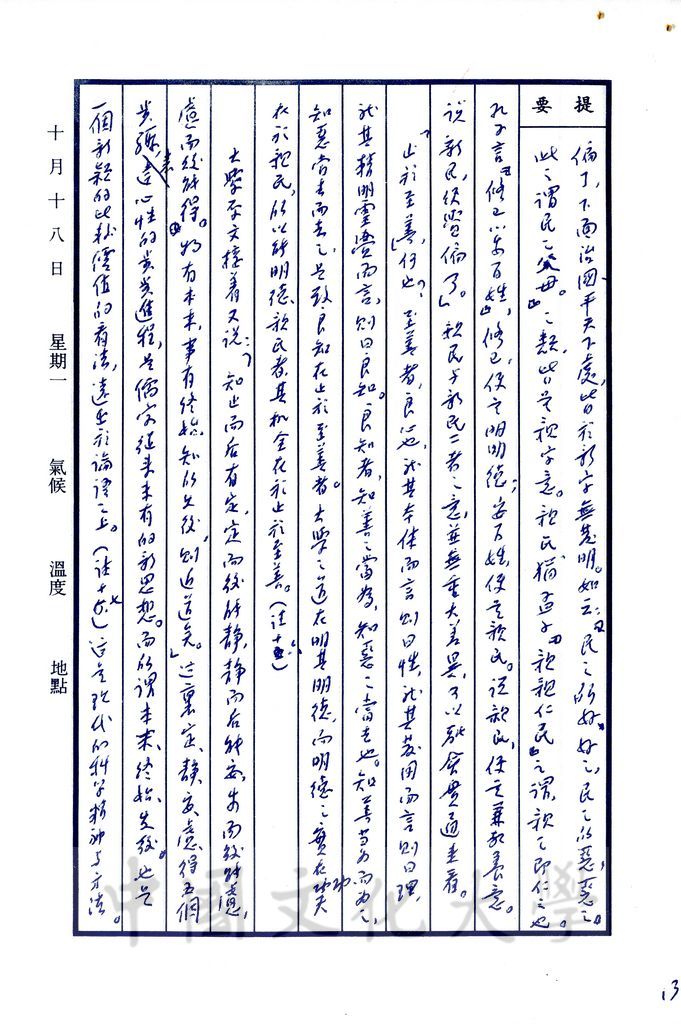 提要
偏了，下面治國平天下處，皆於新字無發明。如云：「民之所好好之，民之所惡惡之，
此之謂民之父母。」之類，皆是親字意。親民猶孟子「親親仁民」之謂，親之即仁之也。
孔子言「修己以安百姓」，修己，便是明明德；安百姓，便是親民。說親民，便是兼教養意。
說新民，便覺偏了。」親民與新民二者之意，並無重大差異，可以融會貫通來看。
「止於至善」，何也？至善者，良心也，就其本体而言則曰性，就其發用而言則曰理，
就其精明靈覺而言，則曰良知。良知者，知善之當為，知惡之當去也。知善當為而為之，
知惡當去而去之，是致良知在止於至善者。大學之道在明其明德，而明德之實在功夫
在於親民，所以能明德、親民者，其机全在於止於至善。（註十六）
大學原文接着又說：「知止而后有定，定而後能靜，靜而后能安，安而後能慮，
慮而後能得。物有本末，事有終始，知所先後，則近道矣。」這裏定、靜、安、慮、得五個
步驟，這心性的步步進程，是儒家從來未有的新思想。而所謂本末、終始、先後，也是
一個新穎的比較價值的看法，遠在於論語之上。（註十七）這是現代的科學精神與方法。
十月十八日 星期一 氣候 溫度 地點
中國文化大學
13